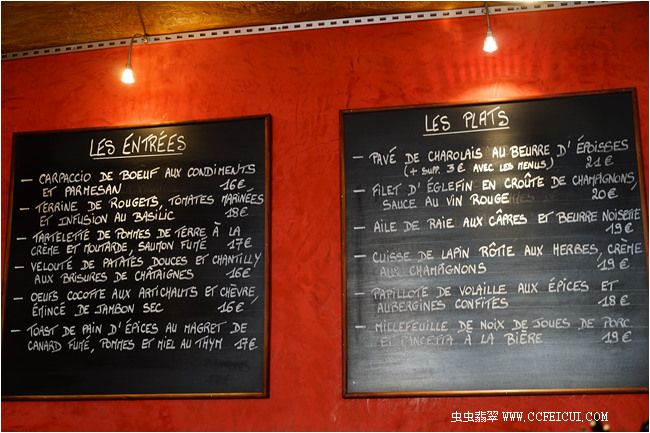 LES ENTRÉES
- CARPACCIO DE BOEUF AUX CONDIMENTS
ET PARMESAN 16€
- TERRINE DE ROUGETS, TOMATES MARINÉES
ET INFUSION AU BASILIC 18€
- TARTELETTE DE POMMES DE TERRE À LA
CRÈME ET MOUTARDE, SAUMON FUMÉ 17€
- VELOUTÉ DE PATATES DOUCES ET CHANTILLY
AUX BRISURES DE CHÂTAIGNES 16€
- OEUFS COCOTTE AUX ARTICHAUTS ET CHÈVRE,
ÉMINCÉ DE JAMBON SEC 16€
- TOAST DE PAIN D'ÉPICES AU MAGRET DE
CANARD FUMÉ, POMMES ET MIEL AU THYM 17€
LES PLATS
- PAVÉ DE CHAROLAIS AU BEURRE D'ÉPOISSES
(+ SUPP. 3€ AVEC LES MENUS) 21€
- FILET D'ÉGLEFIN EN CROÛTE DE CHAMPIGNONS,
SAUCE AU VIN ROUGE 20€
- AILE DE RAIE AUX CÂPRES ET BEURRE NOISETTE
19€
- CUISSE DE LAPIN RÔTIE AUX HERBES, CRÈME
AUX CHAMPIGNONS 19€
- PAPILLOTE DE VOLAILLE AUX ÉPICES ET
AUBERGINES CONFITES 18€
- MILLEFEUILLE DE NOIX DE JOUES DE PORC
ET PANCETTA À LA BIÈRE 19€
虫虫翡翠 WWW.CCFEICUI.COM